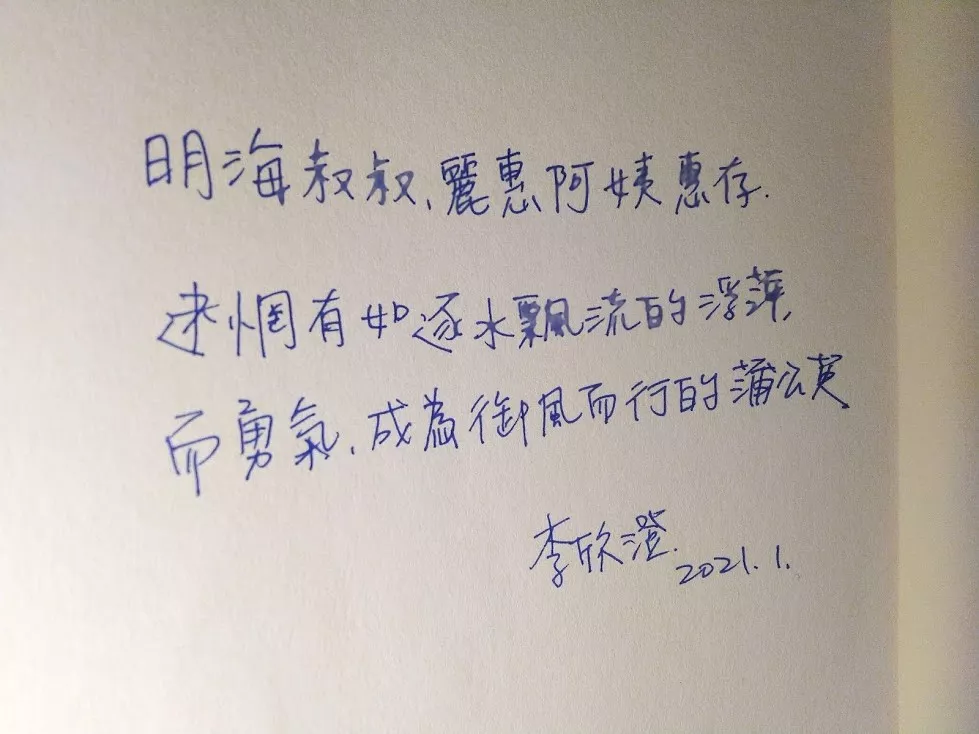 明海叔叔、麗惠阿姨惠存.
迷惘有如逐水飄流的浮萍,
而勇氣、成為御風而行的蒲公英
李欣澄.
2021.1.